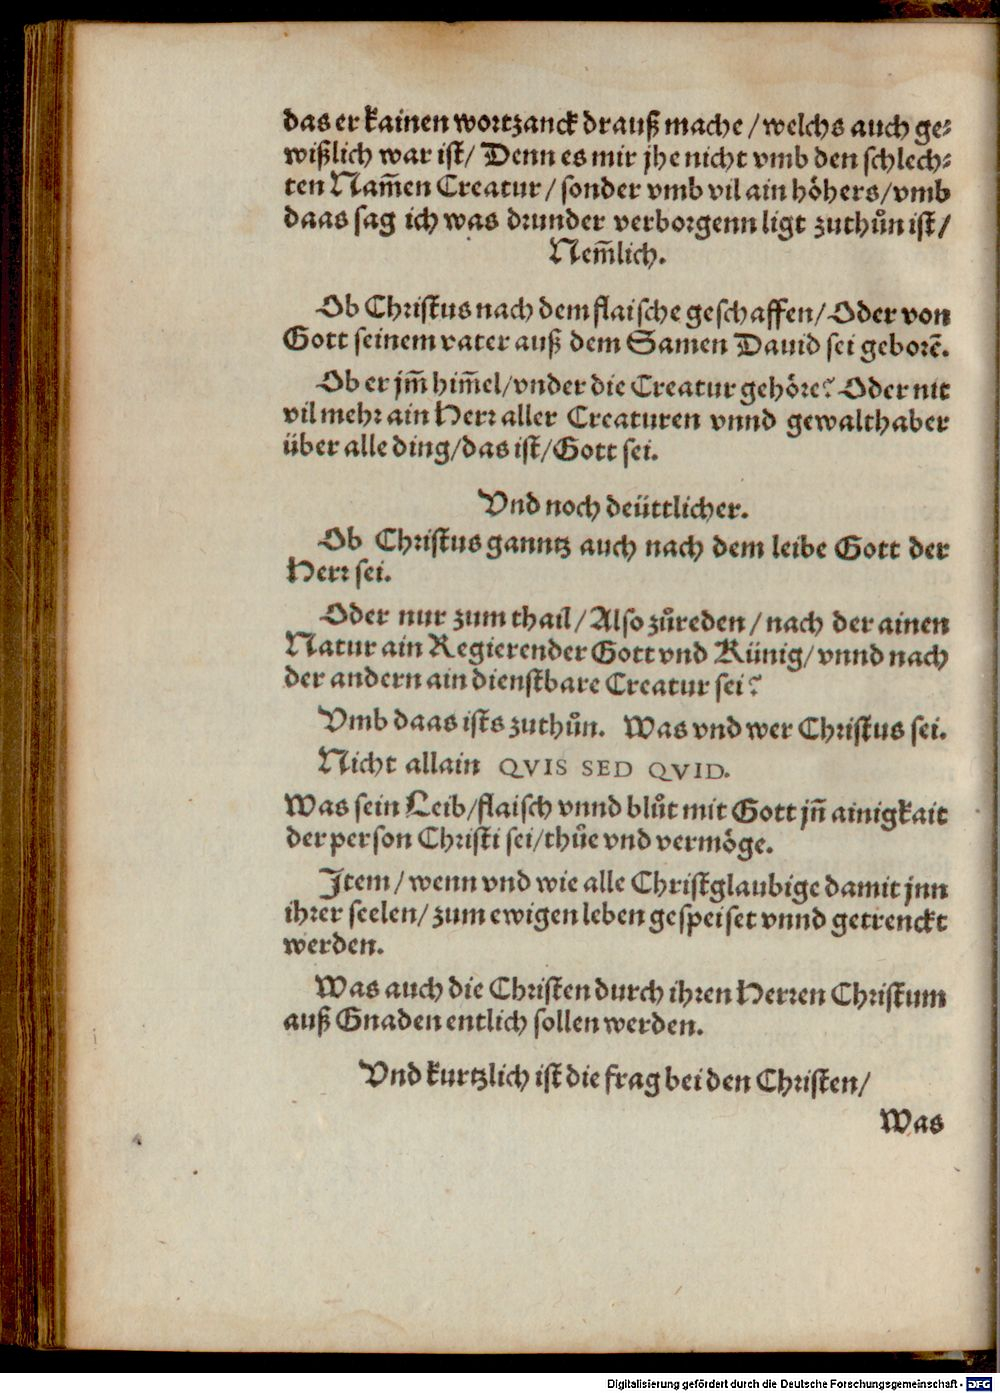 das er kainen wortzanck drauß mache / welchs auch ge⸗
wißlich war ist / Denn es mir jhe nicht vmb den schlech⸗
ten Nam̃en Creatur / sonder vmb vil ain höhers / vmb
daas sag ich was drunder verborgenn ligt zuthůn ist /
Nem̃lich.
Ob Christus nach dem flaische geschaffen / Oder von
Gott seinem vater auß dem Samen Dauid sei geborẽ.
Ob er jm̃ him̃el / vnder die Creatur gehöre? Oder nit
vil mehr ain Herr aller Creaturen vnnd gewalthaber
über alle ding / das ist / Gott sei.
Vnd noch deüttlicher.
Ob Christus ganntz auch nach dem leibe Gott der
Herr sei.
Oder nur zum thail / Also zůreden / nach der ainen
Natur ain Regierender Gott vnd Künig / vnnd nach
der andern ain dienstbare Creatur sei?
Vmb daas ists zuthůn. Was vnd wer Christus sei.
Nicht allain QVIS SED QVID.
Was sein Leib / flaisch vnnd blůt mit Gott jñ ainigkait
der person Christi sei / thůe vnd vermöge.
Item / wenn vnd wie alle Christglaubige damit jnn
ihrer seelen / zum ewigen leben gespeiset vnnd getrenckt
werden.
Was auch die Christen durch ihren Herren Christum
auß Gnaden entlich sollen werden.
Vnd kurtzlich ist die frag bei den Christen /
Was
Digitalisierung gefördert durch die Deutsche Forschungsgemeinschaft - DFG